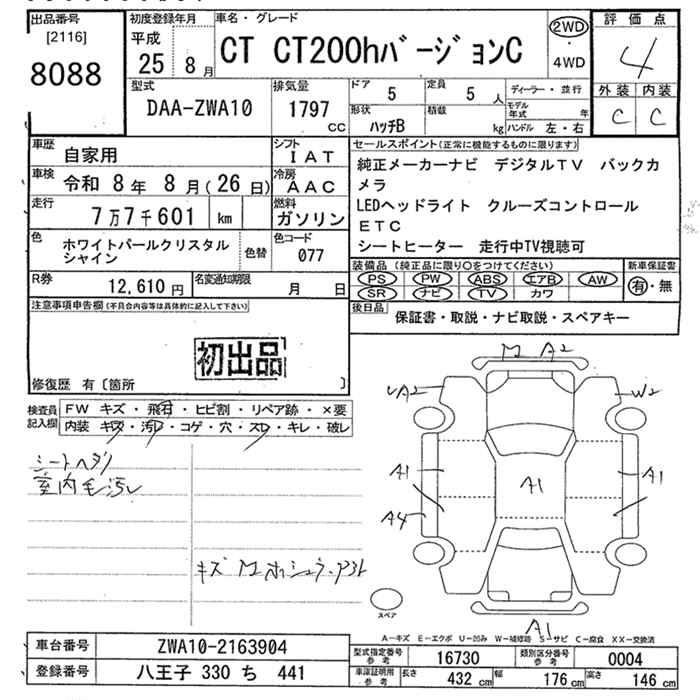 出品番号
[2116]
8088
初度登録年月
平成
25 8月
車名・グレード
CT CT200hバージョンC
2WD
・
4WD
評価点
4
外装 内装
C C
型式
DAA-ZWA10
排気量
1797
CC
ドア
5
定員
5 人
形状
ハッチB
積載
kg
ディーラー・並行
モデル年式 年
ハンドル 左・右
車歴
自家用
シフト
IAT
車検
令和 8年 8月(26日)
冷房
AAC
走行
7万7千601 km
燃料
ガソリン
色
ホワイトパールクリスタル
シャイン
色替
色コード
077
R券
12,610円
名変通知期限
月 日
セールスポイント(正常に機能するものに限ります)
純正メーカーナビ デジタルTV バックカ
メラ
LEDヘッドライト クルーズコントロール
ETC
シートヒーター 走行中TV視聴可
装備品 (純正品に限り○をつけてください)
PS PW ABS エアB AW
SR ナビ TV カワ
新車保証書
有・無
後日品
保証書・取説・ナビ取説・スペアキー
注意事項申告欄(不具合内容等は具体的に記入して下さい)
初出品
修復歴 有〔箇所 〕
検査員
記入欄
FW キズ・飛石・ヒビ割・リペア跡・×要
内装 キズ・汚レ・コゲ・穴・スレ・キレ・破レ
シートヘタリ
室内毛汚レ
キズ
M A2
A2
W2
A1
A1
A1
A4
A1
スペア
A-キズ E-エクボ U-凹み W-補修跡 S-サビ C-腐食 XX-交換済
車台番号
ZWA10-2163904
登録番号
八王子 330 ち 441
型式指定番号
参考
16730
類別区分番号
参考
0004
車庫証明用
参考
長さ 432 cm
幅 176 cm
高さ 146 cm